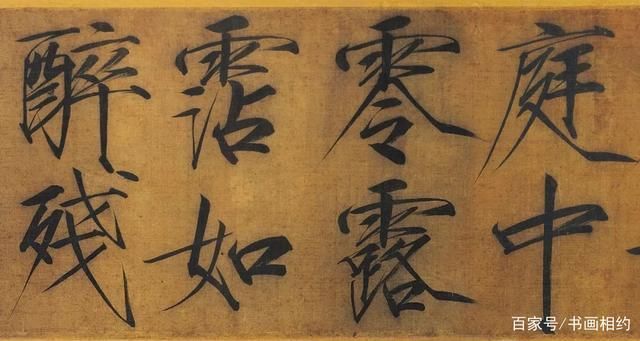 庭中
零露
霑如
醉残
百家号/书画相约